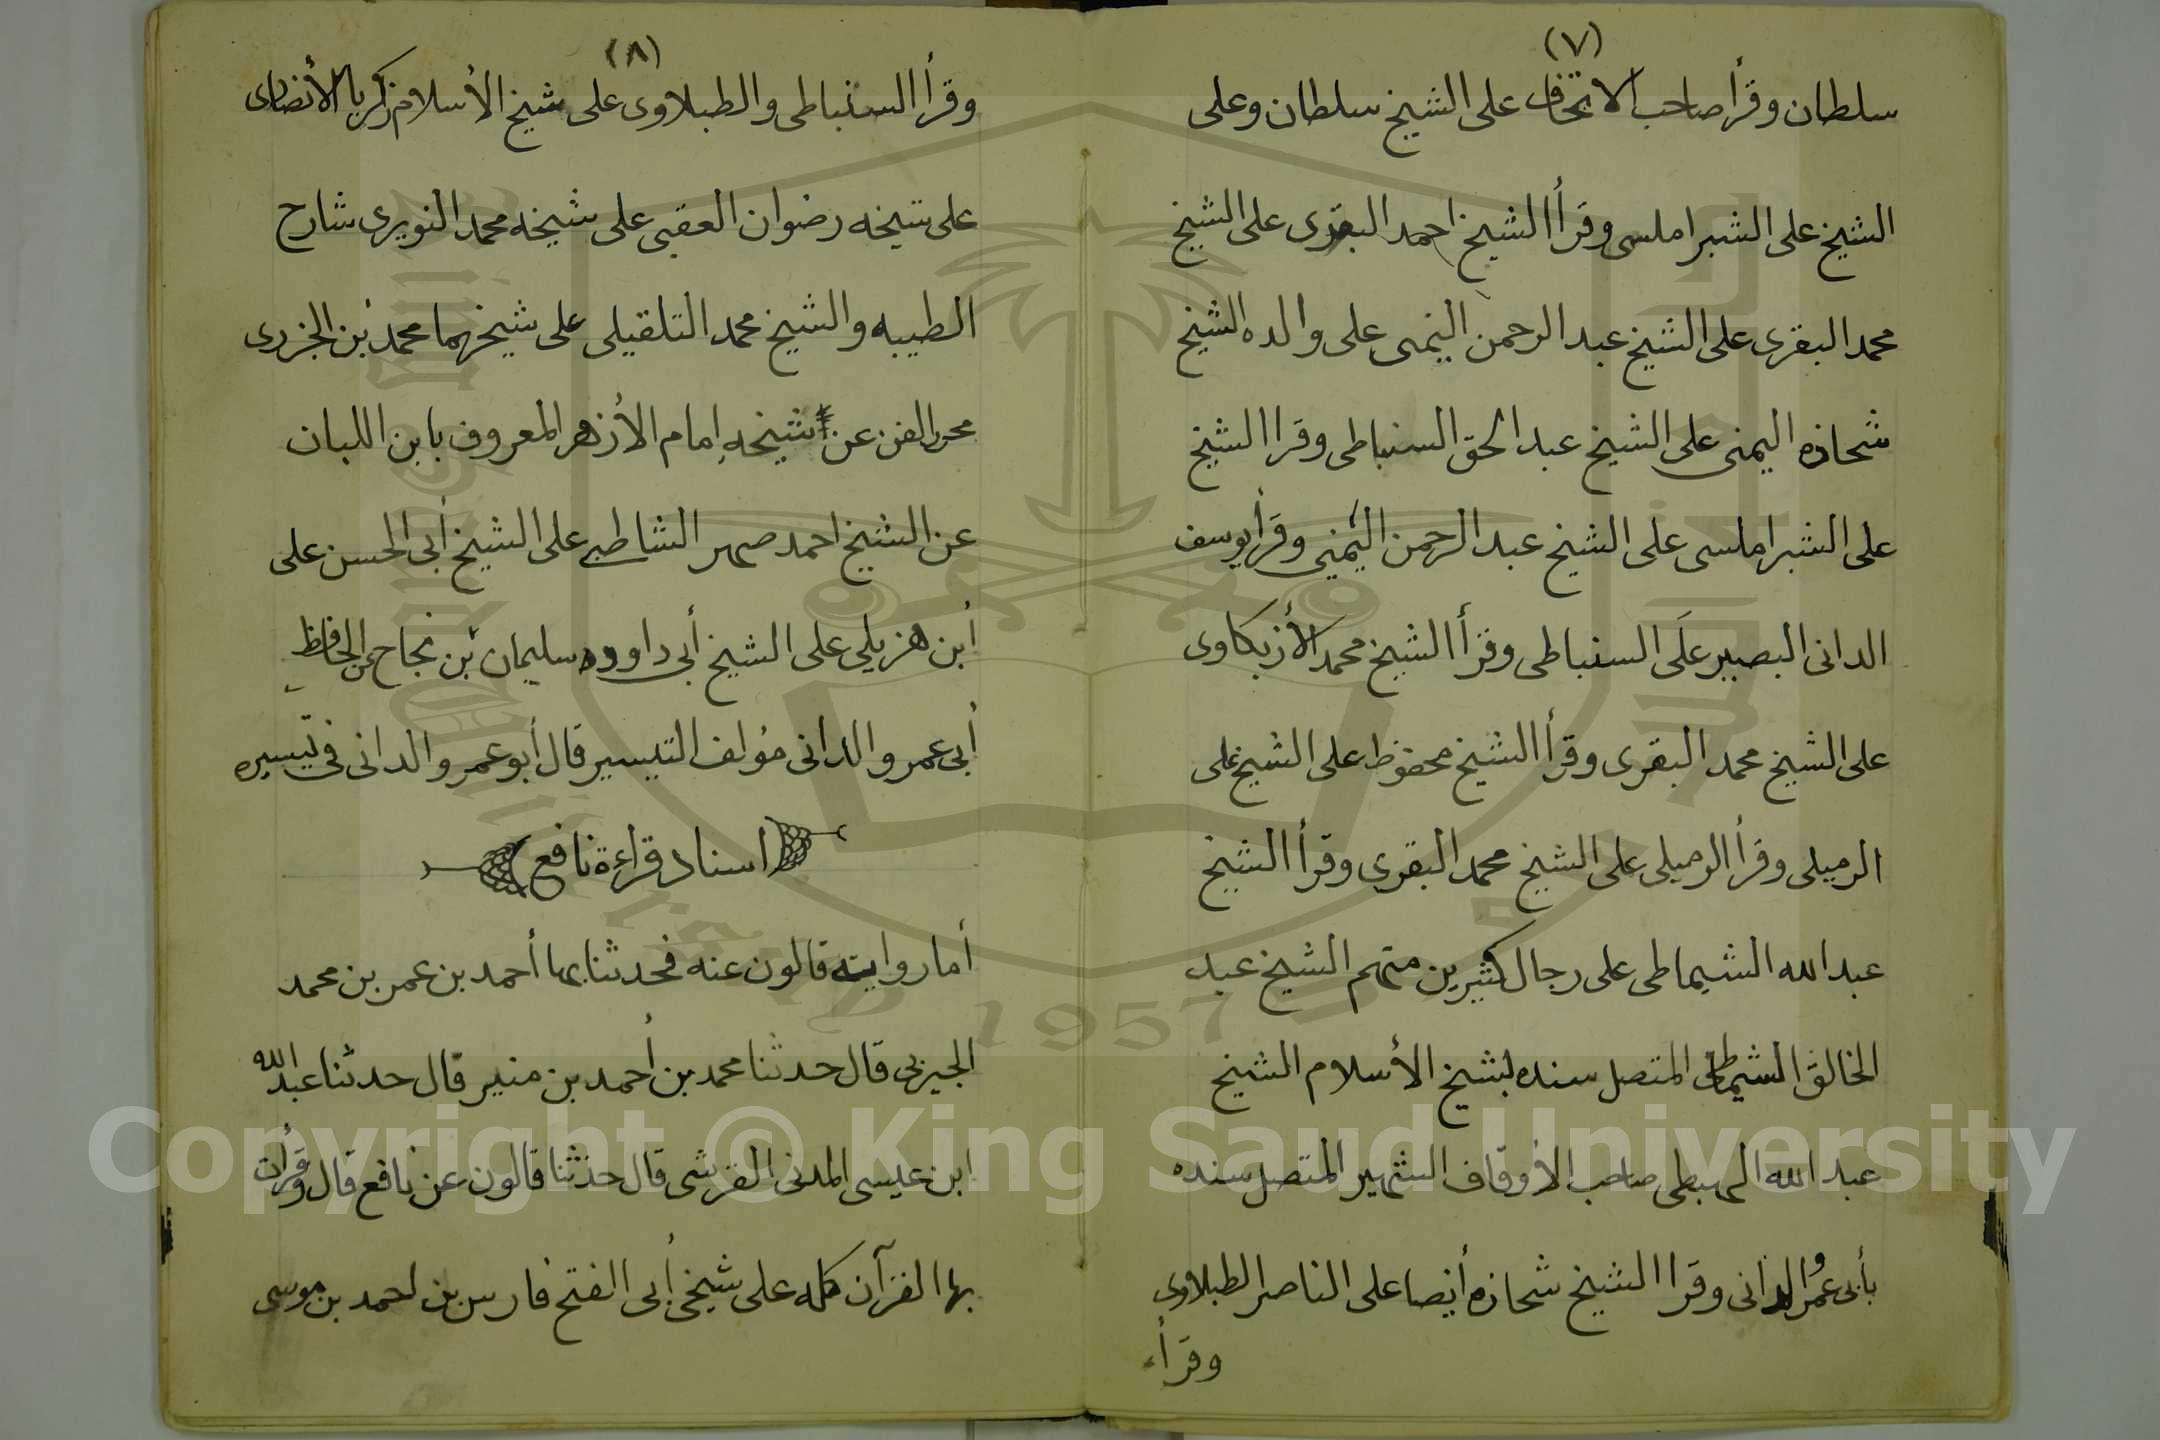 (٧)
سلطان وقرأ صاحب الاتحاف على الشيخ سلطان وعلى
الشيخ على الشبراملسى وقرأ الشيخ احمد البقرى على الشيخ
محمد البقرى على الشيخ عبد الرحمن اليمنى على والده الشيخ
شحاذه اليمنى على الشيخ عبد الحق السنباطى وقرا الشيخ
على الشبراملسى على الشيخ عبد الرحمن اليمني وقرأ يوسف
الدانى البصير علَى السنباطى وقرأ الشيخ محمد الأزبكاوى
على الشيخ محمد البقرى وقرأ الشيخ محفوظ على الشيخ على
الرميلى وقرأ الرميلى على الشيخ محمد البقرى وقرأ الشيخ
عبد الله الشيماطى على رجال كثيرين منهم الشيخ عبد
الخالق الشيماطى المتصل سنده بشيخ الأسلام الشيخ
عبد الله الهبطى صاحب الأوقاف الشهير المتصل سنده
بأبى عمرو الدانى وقرا الشيخ شحاذه أيضا على الناصر الطبلاوى
وقرأ
(٨)
وقرأ السنباطى والطبلاوى على شيخ الأسلام زكريا الأنصارى
على شيخه رضوان العقبى على شيخه محمد النويرى شارح
الطيبه والشيخ محمد التلقيلى على شيخهما محمد بن الجزرى
محرر الفن عن شيخه إمام الأزهر المعروف بابن اللبان
عن الشيخ احمد صهر الشاطبى على الشيخ أبى الحسن على
أبن هزيلى على الشيخ أبى داوود سليمان بن نجاح عن الحافظ
أبى عمرو الدانى مؤلف التيسير قال أبو عمرو الدانى فى تيسيره
اسناد قراءة نافع
أما روايته قالون عنه فحدثنا بها أحمد بن عمر بن محمد
الجيزى قال حدثنا محمد بن أحمد بن منير قال حدثنا عبد الله
ابن عيسى المدنى القرشى قال حدثنا قالون عن نافع قال وقرأت
بها القرآن كله على شيخى أبى الفتح فارس بن احمد بن موسى
Copyright © King Saud University
1957